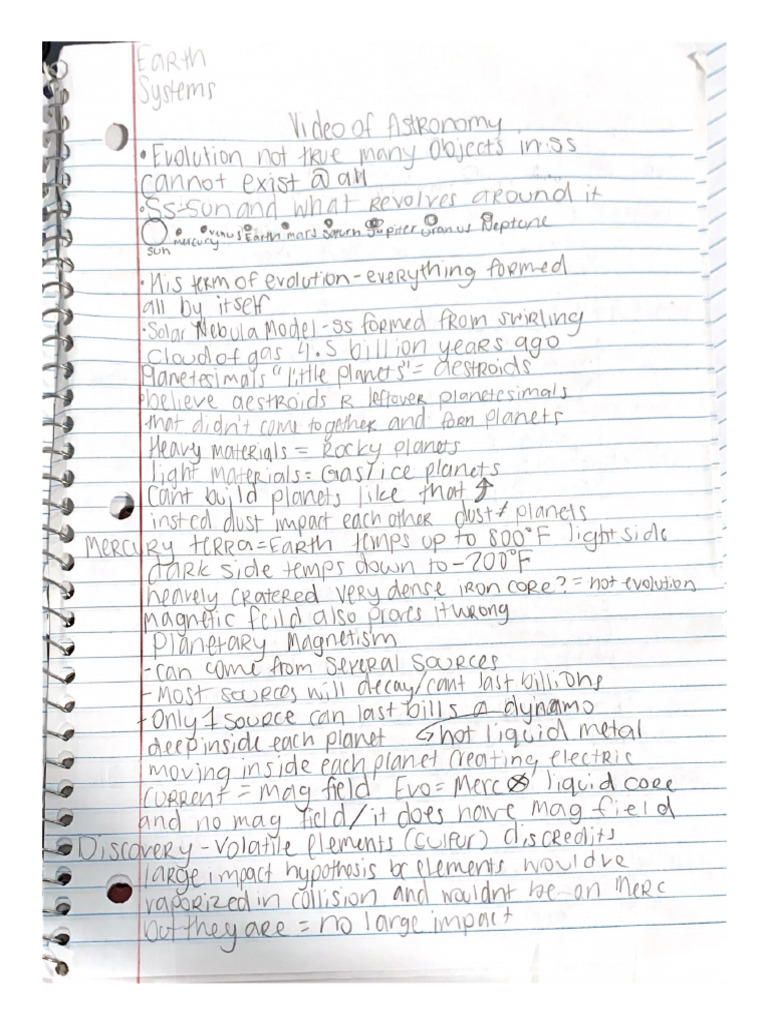 Earth
Systems
Video of Astronomy
• Evolution not true many objects in ss
cannot exist @ all
• Ss=sun and what revolves around it
sun mercury venus Earth mars Saturn Jupiter Uranus Neptune
• His term of evolution - everything formed
all by itself
• Solar Nebula Model - ss formed from swirling
cloud of gas 4.5 billion years ago
Planetesimals "little planets" = aestroids
believe aestroids R leftover planetesimals
that didn't come together and form planets
Heavy materials = Rocky planets
light materials = Gas/ice planets
Cant build planets like that ↑
insted dust impact each other dust ≠ planets
Mercury terra = Earth temps up to 800°F light side
dark side temps down to -200°F
heavely cratered very dense iron core? = not evolution
magnetic feild also proves it wrong
Planetary Magnetism
- can come from several sources
- Most sources will decay/cant last billions
- Only 1 source can last bills a dynamo
deep inside each planet ↳ hot liquid metal
moving inside each planet creating electric
current = mag field Evo = Merc liquid core
and no mag field/it does have mag field
Discovery - Volatile elements (sulfur) discredits
large impact hypothesis bc elements wouldve
vaporized in collision and wouldnt be on Merc
but they are = no large impact